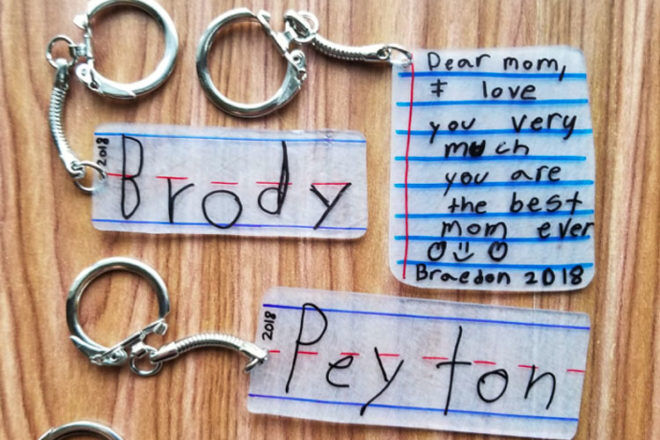 2018
Brody
Dear mom,
I love
you very
much
you are
the best
mom ever
Braedon 2018
2018
Peyton